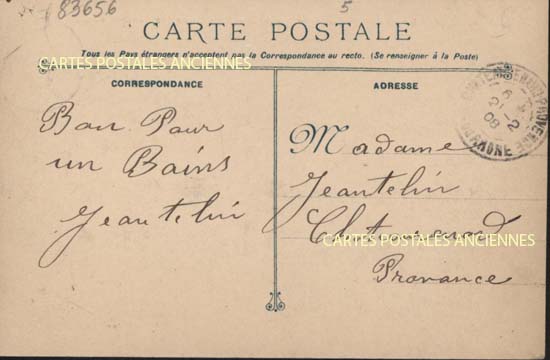 83656
5
CARTE POSTALE
Tous les Pays étrangers n'acceptent pas la Correspondance au recto. (Se renseigner à la Poste)
CARTES POSTALES ANCIENNES
CORRESPONDANCE
ADRESSE
Bon Pour
un Bains
Jeantelin
Madame
Jeantelin
CARTES POSTALES ANCIENNES
Provance
PROVENCE
RHONE